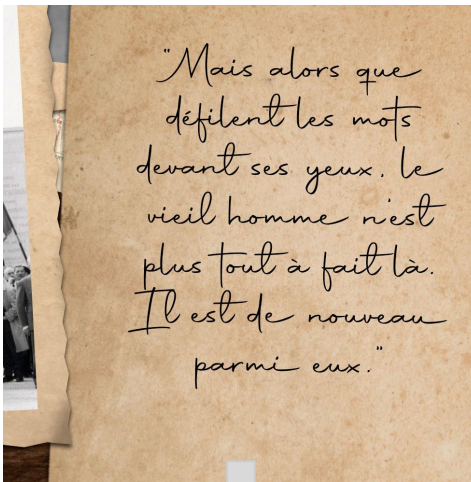 "Mais alors que
défilent les mots
devant ses yeux, le
vieil homme n'est
plus tout à fait là.
Il est de nouveau
parmi eux."